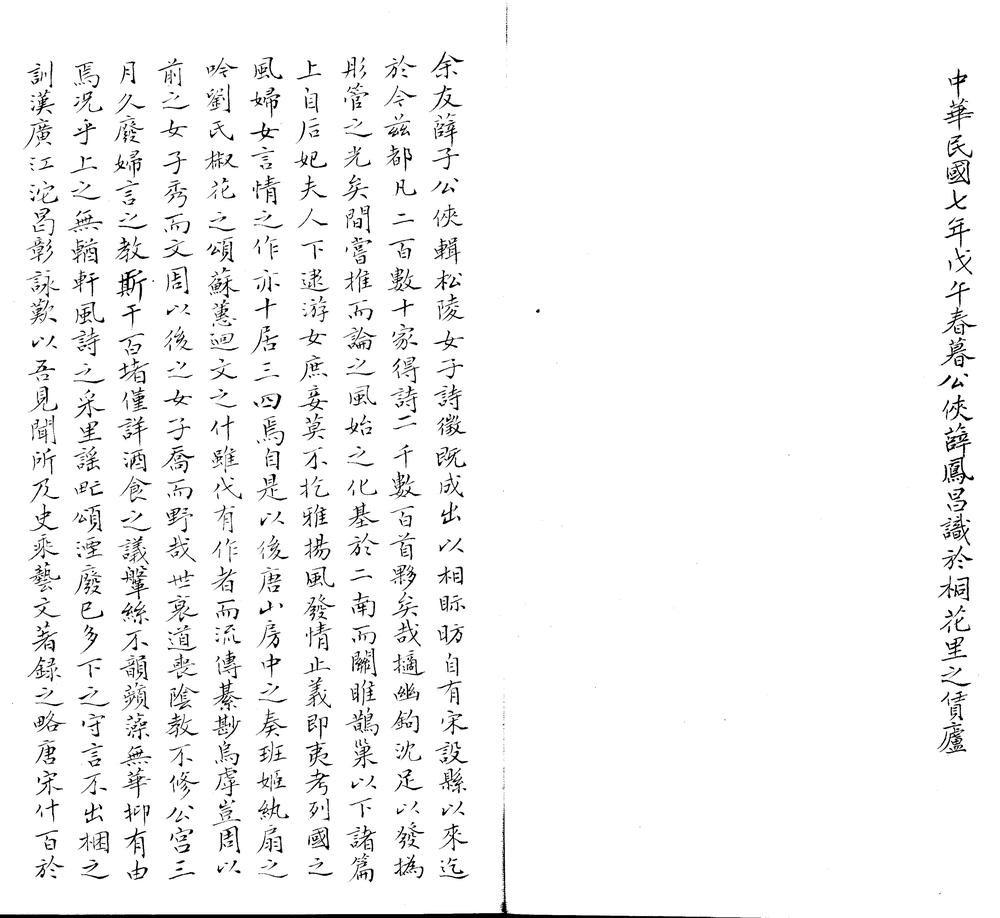 中華民國七年戊午春暮公俠薛鳳昌識於桐花里之賃廬
余友薛子公俠輯松陵女子詩徵既成出以相眎昉自有宋設縣以來迄
於今茲都凡二百數十家得詩二千數百首夥矣哉擿幽鉤沈足以發撝
彤管之光矣間嘗推而論之風始之化基於二南而關雎鵲巢以下諸篇
上自后妃夫人下逮游女庶妾莫不扢雅揚風發情止義即夷考列國之
風婦女言情之作亦十居三四焉自是以後唐山房中之奏班姬紈扇之
吟劉氏椒花之頌蘇蕙迴文之什雖代有作者而流傳綦尠烏虖豈周以
前之女子秀而文周以後之女子喬而野哉世衰道喪陰教不修公宮三
月久廢婦言之教斯干百堵僅詳酒食之議鞶絲不韻蘋藻無華抑有由
焉况乎上之無輶軒風詩之采里謠甿頌湮廢已多下之守言不出梱之
訓漢廣江沱曷彰詠歎以吾見聞所及史乘藝文著録之略唐宋什百於